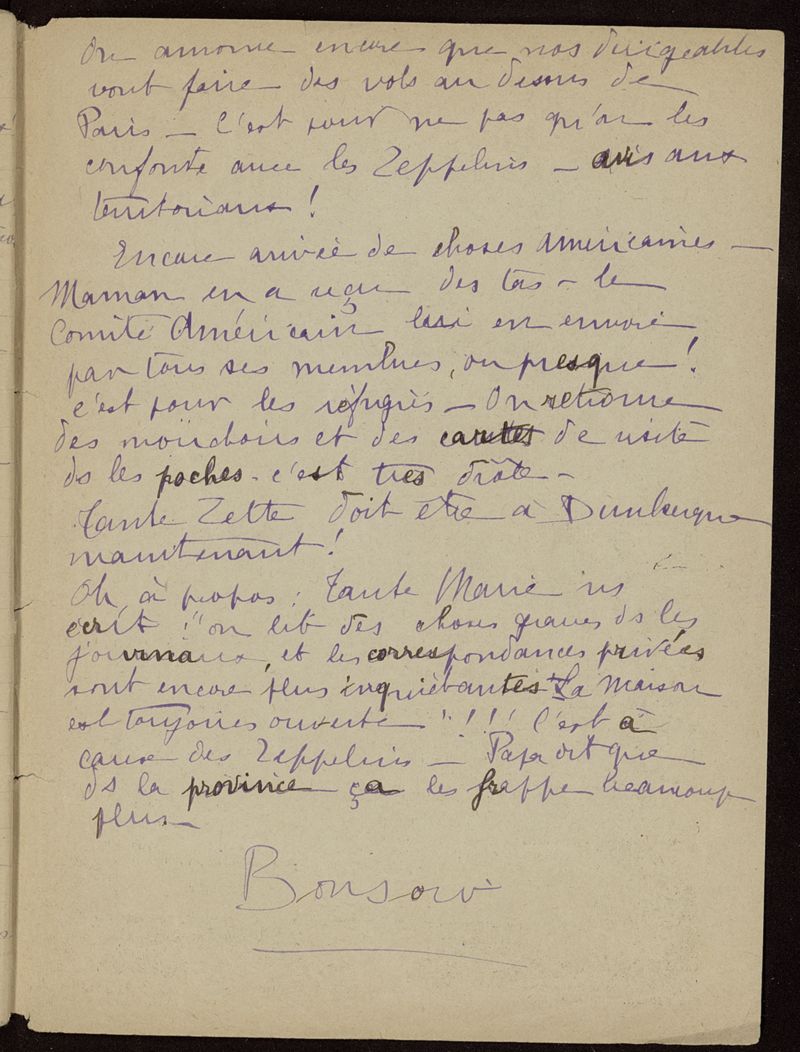 On annonce encore que nos dirigeables
vont faire des vols au dessus de
Paris _ C'est pour ne pas qu'on les
confonde avec les Zeppelins _ avis aux
territoriaux !
Encore arrivée de choses américaines _
Maman en a reçu des tas _ le
Comité Américain lui en envoie
par tous ses membres, ou presque !
c'est pour les réfugiés _ On retrouve
des mouchoirs et des cartes de visite
ds les poches _ c'est très drôle _
Tante Zette doit être à Dunkerque
maintenant !
Oh, à propos : Tante Marie ns
écrit : "on lit des choses graves ds les
journaux, et les correspondances privées
sont encore plus inquiétantes La maison
est toujours ouverte" !!! C'est à
cause des Zeppelins _ Papa dit que
ds la province ça les frappe beaucoup
plus _
Bonsoir